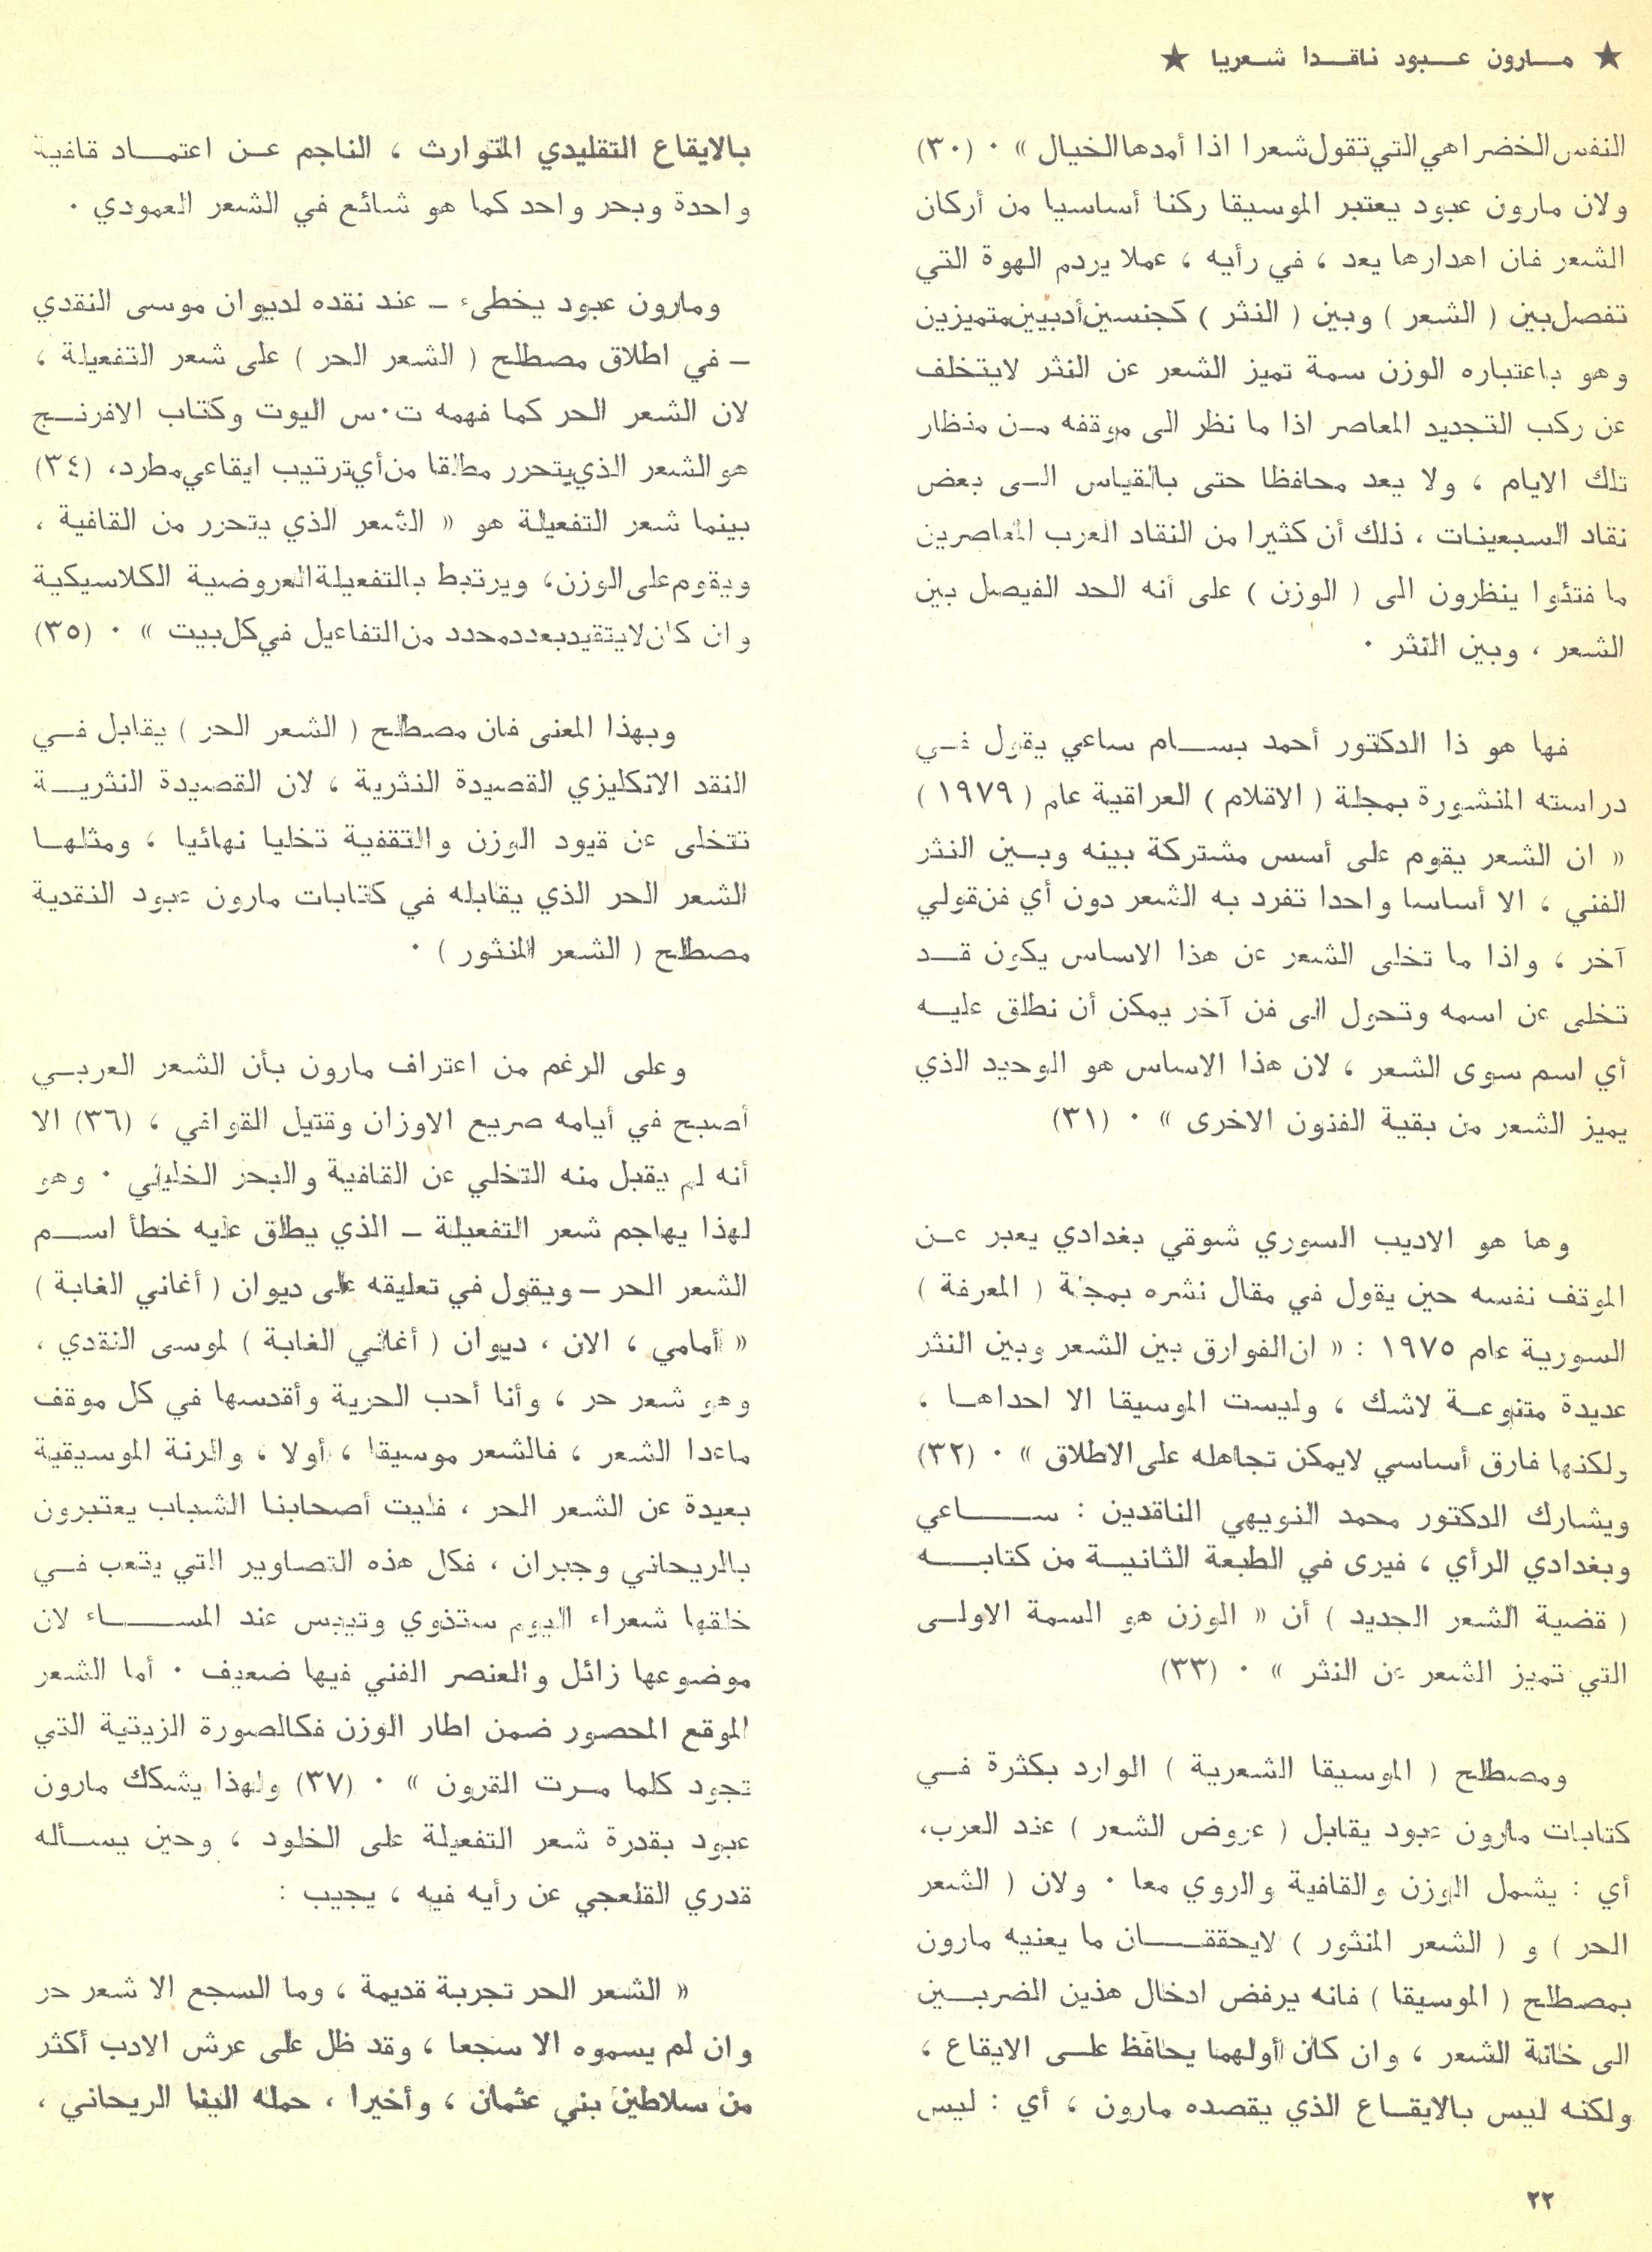 ★ مـارون عـبود ناقـدا شـعريا ★
النفس الخضرا هي التي تقول شعرا اذا أمدها الخيال » ٠ (٣٠)
ولان مارون عبود يعتبر الموسيقا ركنا أساسيا من أركان
الشعر فان اهدارها يعد ، في رأيه ، عملا يردم الهوة التي
تفصل بين ( الشعر ) وبين ( النثر ) كجنسين أدبيين متميزين
وهو باعتباره الوزن سمة تميز الشعر عن النثر لايتخلف
عن ركب التجديد المعاصر اذا ما نظر الى موقفه مـن منظار
تلك الايام ، ولا يعد محافظا حتى بالقياس الـى بعض
نقاد السبعينات ، ذلك أن كثيرا من النقاد العرب المعاصرين
ما فتئوا ينظرون الى ( الوزن ) على أنه الحد الفيصل بين
الشعر ، وبين النثر ٠
فها هو ذا الدكتور أحمد بسـام ساعي يقول فـي
دراسته المنشورة بمجلة ( الاقلام ) العراقية عام ( ١٩٧٩ )
« ان الشعر يقوم على أسس مشتركة بينه وبـين النثر
الفني ، الا أساسا واحدا تفرد به الشعر دون أي فن قولي
آخر ، واذا ما تخلى الشعر عن هذا الاساس يكون قـد
تخلى عن اسمه وتحول الى فن آخر يمكن أن نطلق عليـه
أي اسم سوى الشعر ، لان هذا الاساس هو الوحيد الذي
يميز الشعر من بقية الفنون الاخرى » ٠ (٣١)
وها هو الاديب السوري شوقي بغدادي يعبر عـن
الموقف نفسه حين يقول في مقال نشره بمجلة ( المعرفة )
السورية عام ١٩٧٥ : « ان الفوارق بين الشعر وبين النثر
عديدة متنوعـة لاشك ، وليست الموسيقا الا احداهـا ،
ولكنها فارق أساسي لايمكن تجاهله على الاطلاق » ٠ (٣٢)
ويشارك الدكتور محمد النويهي الناقدين : سـاعي
وبغدادي الرأي ، فيرى في الطبعة الثانيـة من كتابـه
( قضية الشعر الجديد ) أن « الوزن هو السمة الاولـى
التي تميز الشعر عن النثر » ٠ (٣٣)
ومصطلح ( الموسيقا الشعرية ) الوارد بكثرة فـي
كتابات مارون عبود يقابل ( عروض الشعر ) عند العرب،
أي : يشمل الوزن والقافية والروي معا ٠ ولان ( الشعر
الحر ) و ( الشعر المنثور ) لايحققـان ما يعنيه مارون
بمصطلح ( الموسيقا ) فانه يرفض ادخال هذين الضربـين
الى خانة الشعر ، وان كان أولهما يحافظ علـى الايقاع ،
ولكنه ليس بالايقـاع الذي يقصده مارون ، أي : ليس
بالايقاع التقليدي المتوارث ، الناجم عـن اعتمـاد قافية
واحدة وبحر واحد كما هو شائع في الشعر العمودي ٠
ومارون عبود يخطىء – عند نقده لديوان موسى النقدي
– في اطلاق مصطلح ( الشعر الحر ) على شعر التفعيلة ،
لان الشعر الحر كما فهمه ت٠س اليوت وكتاب الافرنـج
هو الشعر الذي يتحرر مطلقا من أي ترتيب ايقاعي مطرد، (٣٤)
بينما شعر التفعيلة هو « الشعر الذي يتحرر من القافية ،
ويقوم على الوزن، ويرتبط بالتفعيلة العروضية الكلاسيكية
وان كان لايتقيد بعدد محدد من التفاعيل في كل بيت » ٠ (٣٥)
وبهذا المعنى فان مصطلح ( الشعر الحر ) يقابل فـي
النقد الانكليزي القصيدة النثرية ، لان القصيدة النثريـة
تتخلى عن قيود الوزن والتقفية تخليا نهائيا ، ومثلهـا
الشعر الحر الذي يقابله في كتابات مارون عبود النقدية
مصطلح ( الشعر المنثور ) ٠
وعلى الرغم من اعتراف مارون بأن الشعر العربـي
أصبح في أيامه صريع الاوزان وقتيل القوافي ، (٣٦) الا
أنه لم يقبل منه التخلي عن القافية والبحر الخليلي ٠ وهو
لهذا يهاجم شعر التفعيلة – الذي يطلق عليه خطأ اسـم
الشعر الحر – ويقول في تعليقه على ديوان ( أغاني الغابة )
« أمامي ، الان ، ديوان ( أغاني الغابة ) لموسى النقدي ،
وهو شعر حر ، وأنا أحب الحرية وأقدسها في كل موقف
ماعدا الشعر ، فالشعر موسيقا ، أولا ، والرنة الموسيقية
بعيدة عن الشعر الحر ، فليت أصحابنا الشباب يعتبرون
بالريحاني وجبران ، فكل هذه التصاوير التي يتعب فـي
خلقها شعراء اليوم ستذوي وتيبس عند المسـاء لان
موضوعها زائل والعنصر الفني فيها ضعيف ٠ أما الشعر
الموقع المحصور ضمن اطار الوزن فكالصورة الزيتية التي
تجود كلما مـرت القرون » ٠ (٣٧) ولهذا يشكك مارون
عبود بقدرة شعر التفعيلة على الخلود ، وحين يسـأله
قدري القلعجي عن رأيه فيه ، يجيب :
« الشعر الحر تجربة قديمة ، وما السجع الا شعر حر
وان لم يسموه الا سجعا ، وقد ظل على عرش الادب أكثر
من سلاطين بني عثمان ، وأخيرا ، حمله الينا الريحاني ،
٢٢